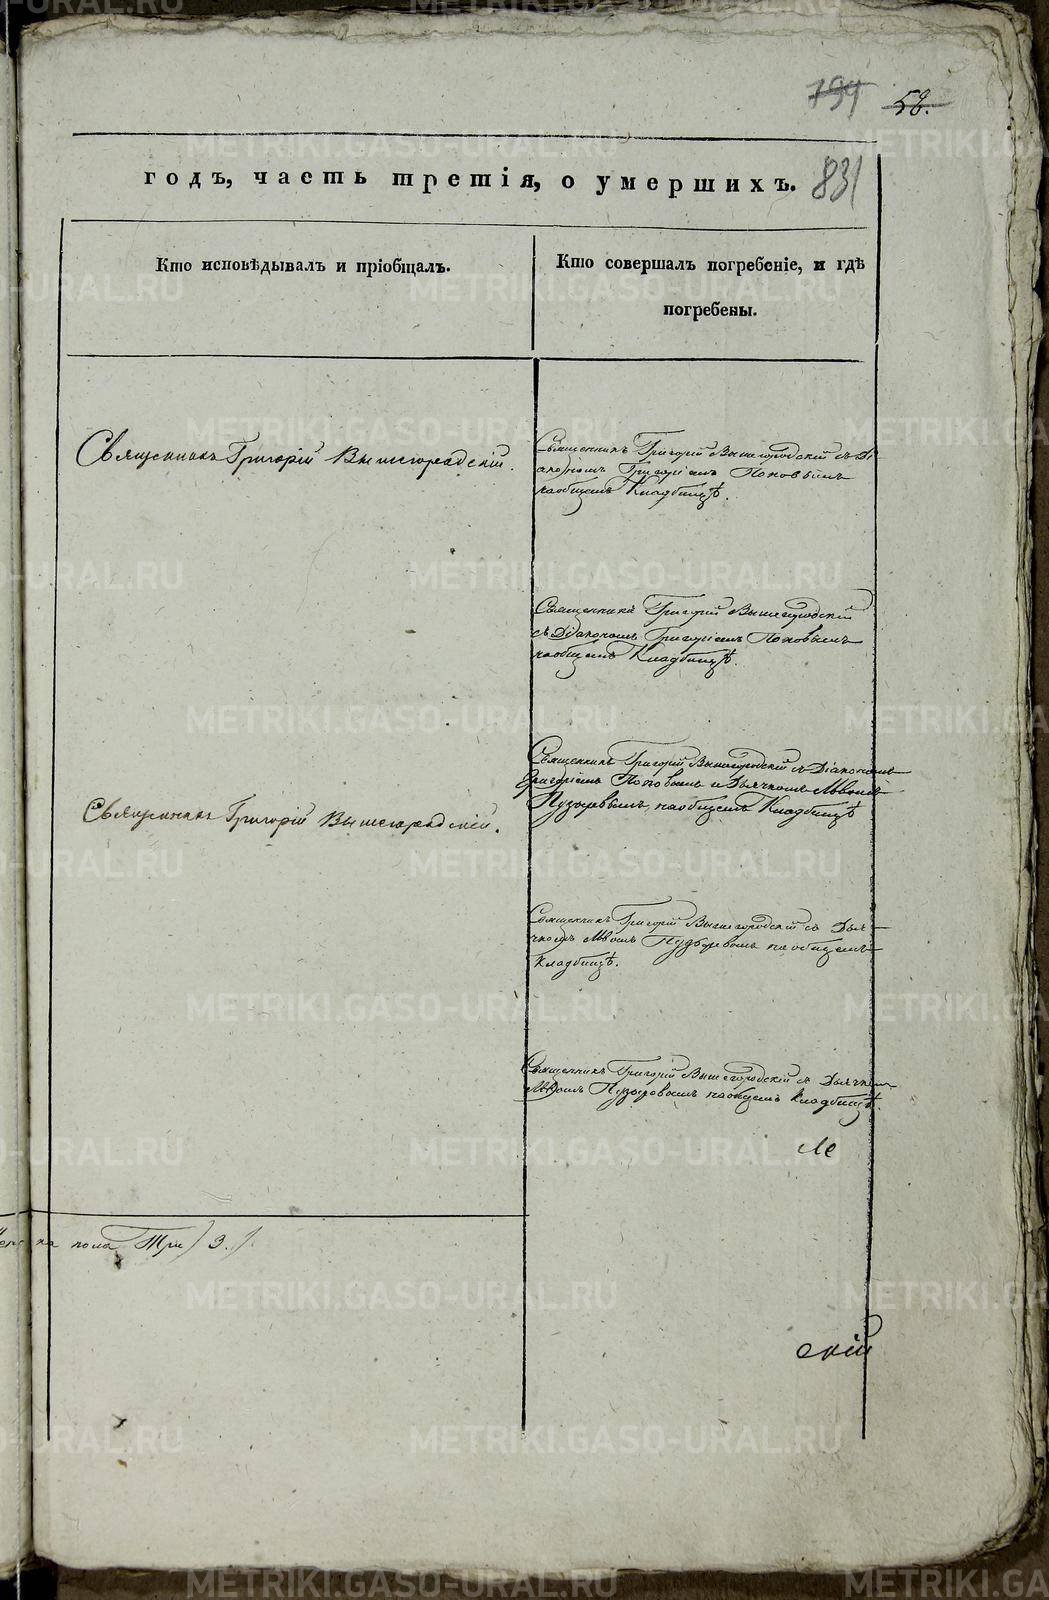 794 58.
годъ, часть третія, о умершихъ. 831
Кто исповѣдывалъ и пріобщалъ.
Кто совершалъ погребеніе, и гдѣ
погребены.
Священникъ Григорій Вышегородскій.
Священникъ Григорій Вышегородскій съ Ді
акономъ Григоріемъ Поповымъ
наобщемъ Кладбищѣ.
Священникъ Григорій Вышегородскій
съ Діакономъ Григоріемъ Поповымъ
наобщемъ Кладбищѣ.
Священникъ Григорій Вышегородскій съ Діакономъ
Григоріемъ Поповымъ и Дьячкомъ Львомъ
Пузыревымъ, наобщемъ Кладбищѣ
Священникъ Григорій Вышегородскій.
Священникъ Григорій Вышегородскій съ Дья
чкомъ Львомъ Пузыревымъ на общемъ
Кладбищѣ.
Священникъ Григорій Вышегородскій съ Дьячкомъ
Львомъ Пузыревымъ наобщемъ Кладбищѣ.
ле
пола Три / 3. /
скій
METRIKI.GASO-URAL.RU